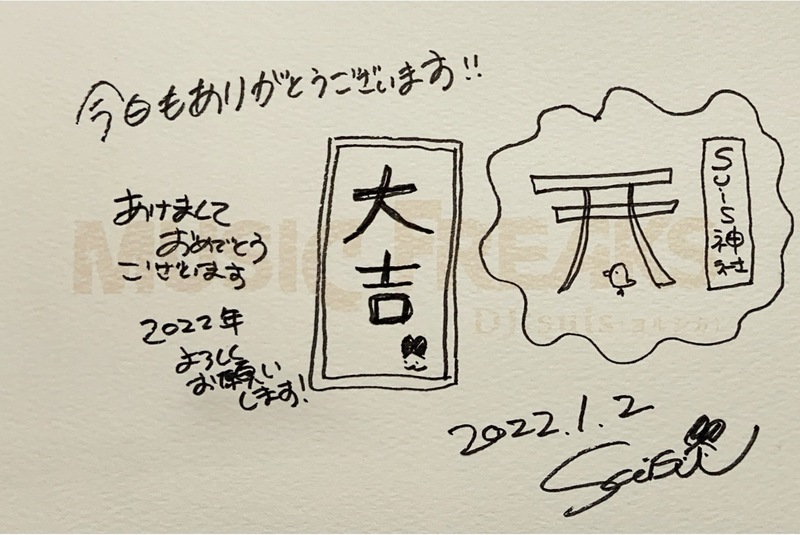 今日もありがとうございます!!
あけまして
おめでとう
ございます
2022年
よろしく
お願い
します!
大吉
suis神社
MUSIC FREAKS
DJ suis(ヨルシカ)
2022.1.2
suis